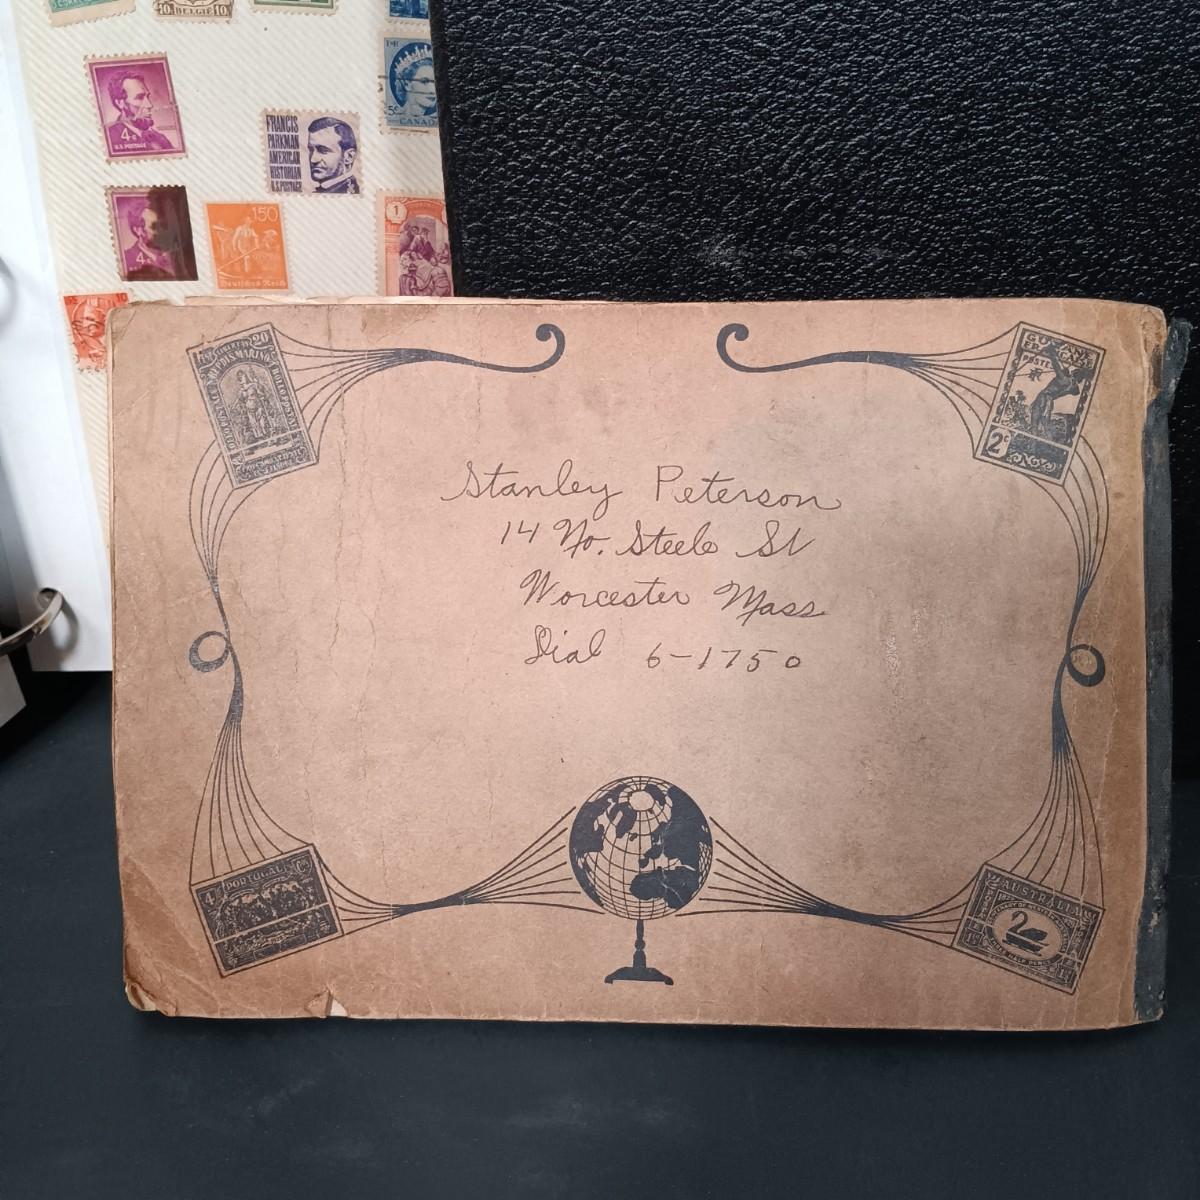 10 BELGIË 10
4¢
U.S. POSTAGE
FRANCIS
PARKMAN
AMERICAN
HISTORIAN
U.S. POSTAGE
5¢
CANADA
4¢
150
Deutsches Reich
1
20
POSTE
2c
Stanley Peterson
14 No. Steele St
Worcester Mass
Dial 6-1750
4 PORTUGAL
AUSTRALIA